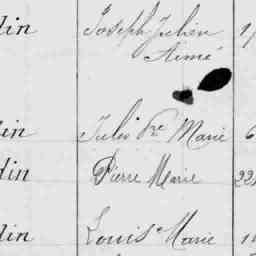 din Joseph Julien 1
Aimé
din Jules Pre Marie 6
din Pierre Marie 22
din Louis Marie 1